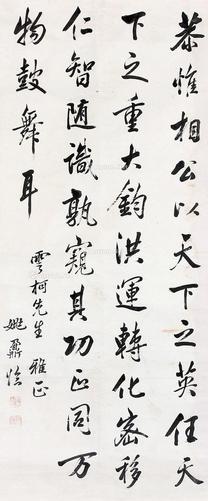 恭惟相公以天下之英任天
下之重大鈞洪運轉化密移
仁智随識孰窺其功正同万
物鼓舞耳
雲柯先生雅正
姚鼐臨